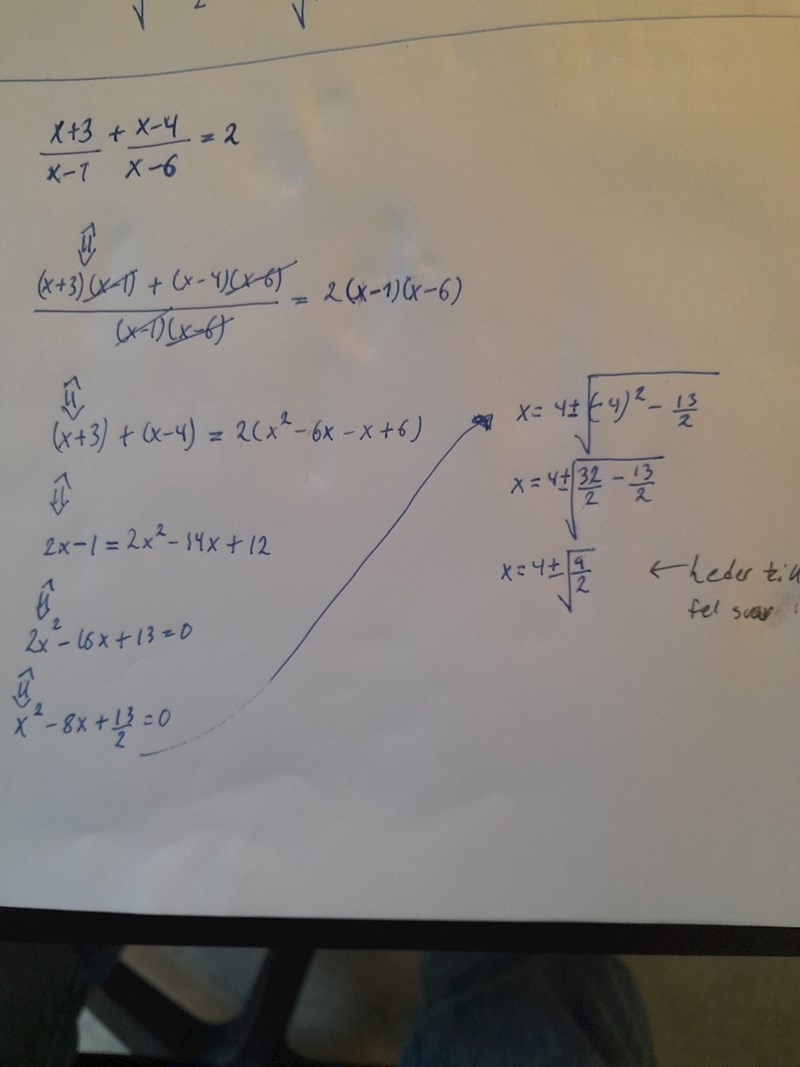 √ 2 √
x+3/x-1 + x-4/x-6 = 2
⇕
(x+3)(x-1) + (x-4)(x-6) / (x-1)(x-6) = 2(x-1)(x-6)
⇕
(x+3) + (x-4) = 2(x²-6x-x+6)
⇕
2x-1 = 2x²-14x+12
⇕
2x²-16x+13=0
⇕
x²-8x+13/2=0
x= 4±√(-4)²-13/2
x= 4±√32/2-13/2
x= 4±√9/2 ← leder till
fel svar